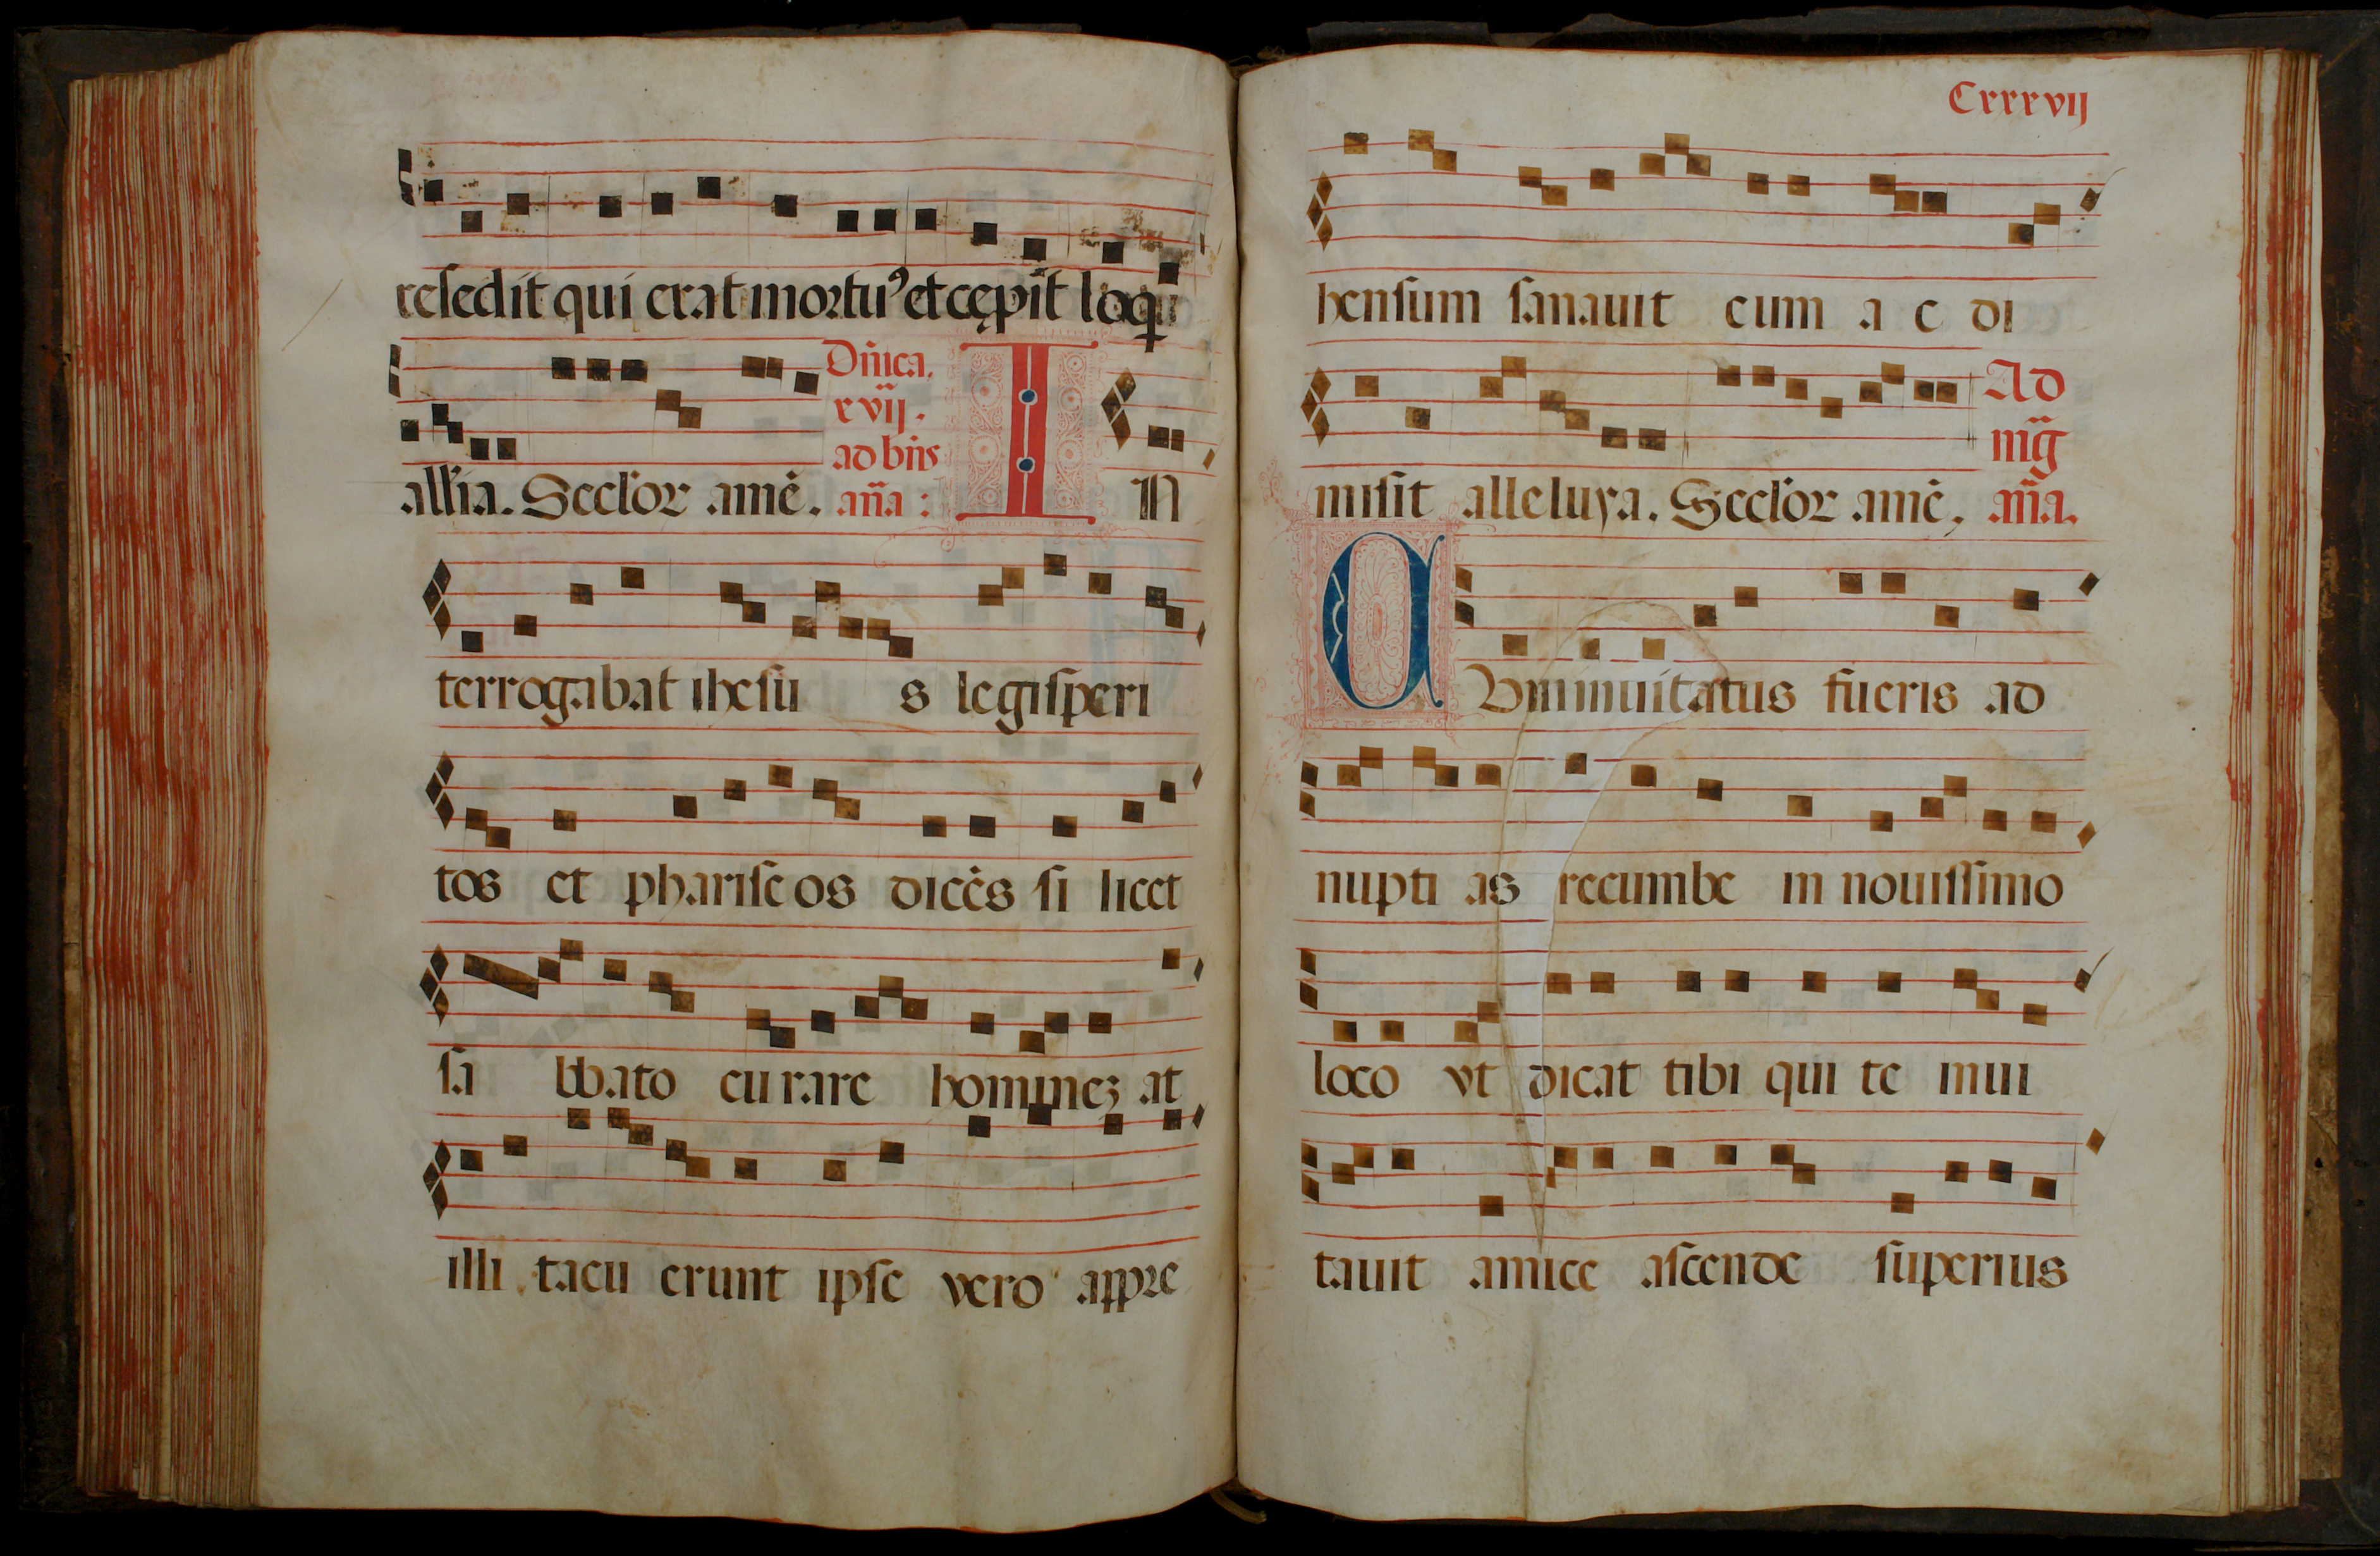 resedit qui erat mortuꝰ et cępit loqui
all'ia. Seclor amē.
Dn̄ica.
xvij.
ad bn̄s
an̄a:
IN
terrogabat ihesu s legisperi
tos et phariseos dicēs si licet
sa bbato curare hominez at
illi tacu erunt ipse vero appre
Cxxxvij
hensum sanauit eum a c di
misit alleluya. Seclor amē,
Ad
mḡ
an̄a.
CVm inuitatus fueris ad
nupti as recumbe in nouissimo
loco vt dicat tibi qui te inui
tauit amice ascende superius